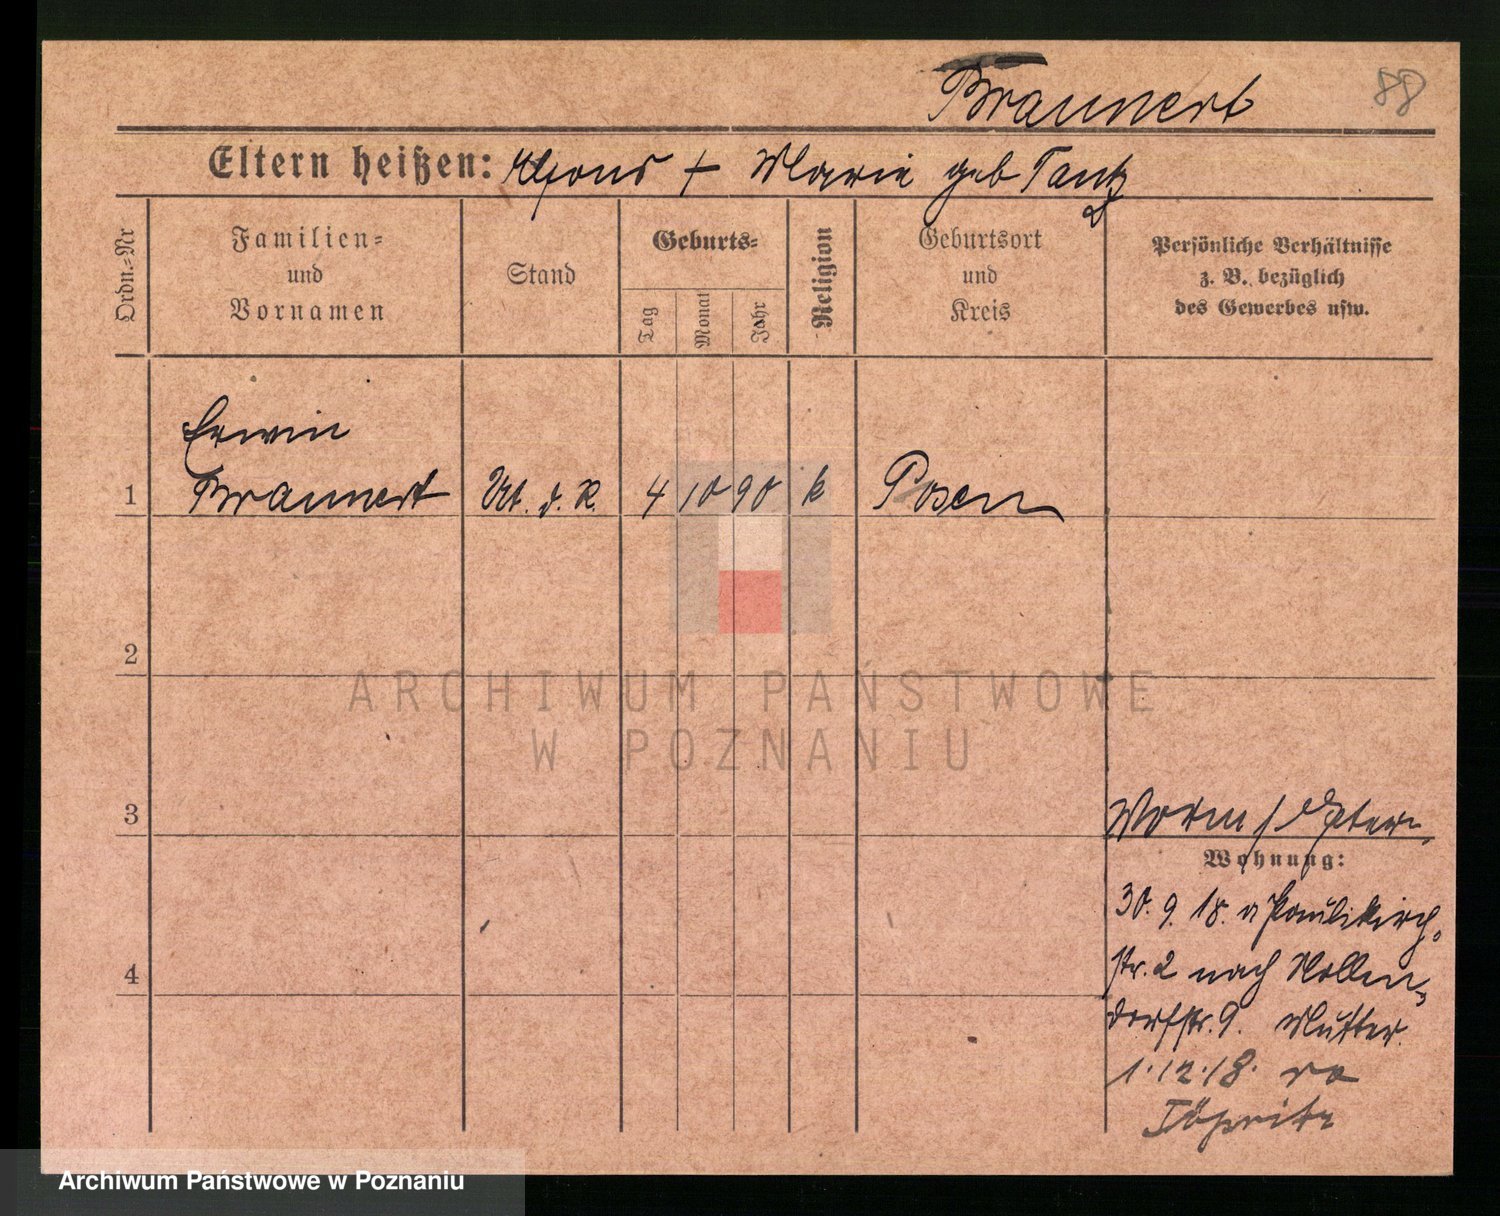 Braunert
88
Eltern heißen: Alfons + Marie geb Tantz
Ordn.-Nr
Familien- und Vornamen
Stand
Geburts-
Tag
Monat
Jahr
Religion
Geburtsort und Kreis
Persönliche Verhältnisse
z. B. bezüglich
des Gewerbes usw.
Erwin
1 Braunert d. R. 4 10 90 k Posen
2
3
Wohnung:
30. 9. 18. Paulikirch-
str. 2 nach Hollen-
4
dorfstr. 9. Mutter.
1.12.18.
ARCHIWUM PAŃSTWOWE
W POZNANIU
Archiwum Państwowe w Poznaniu